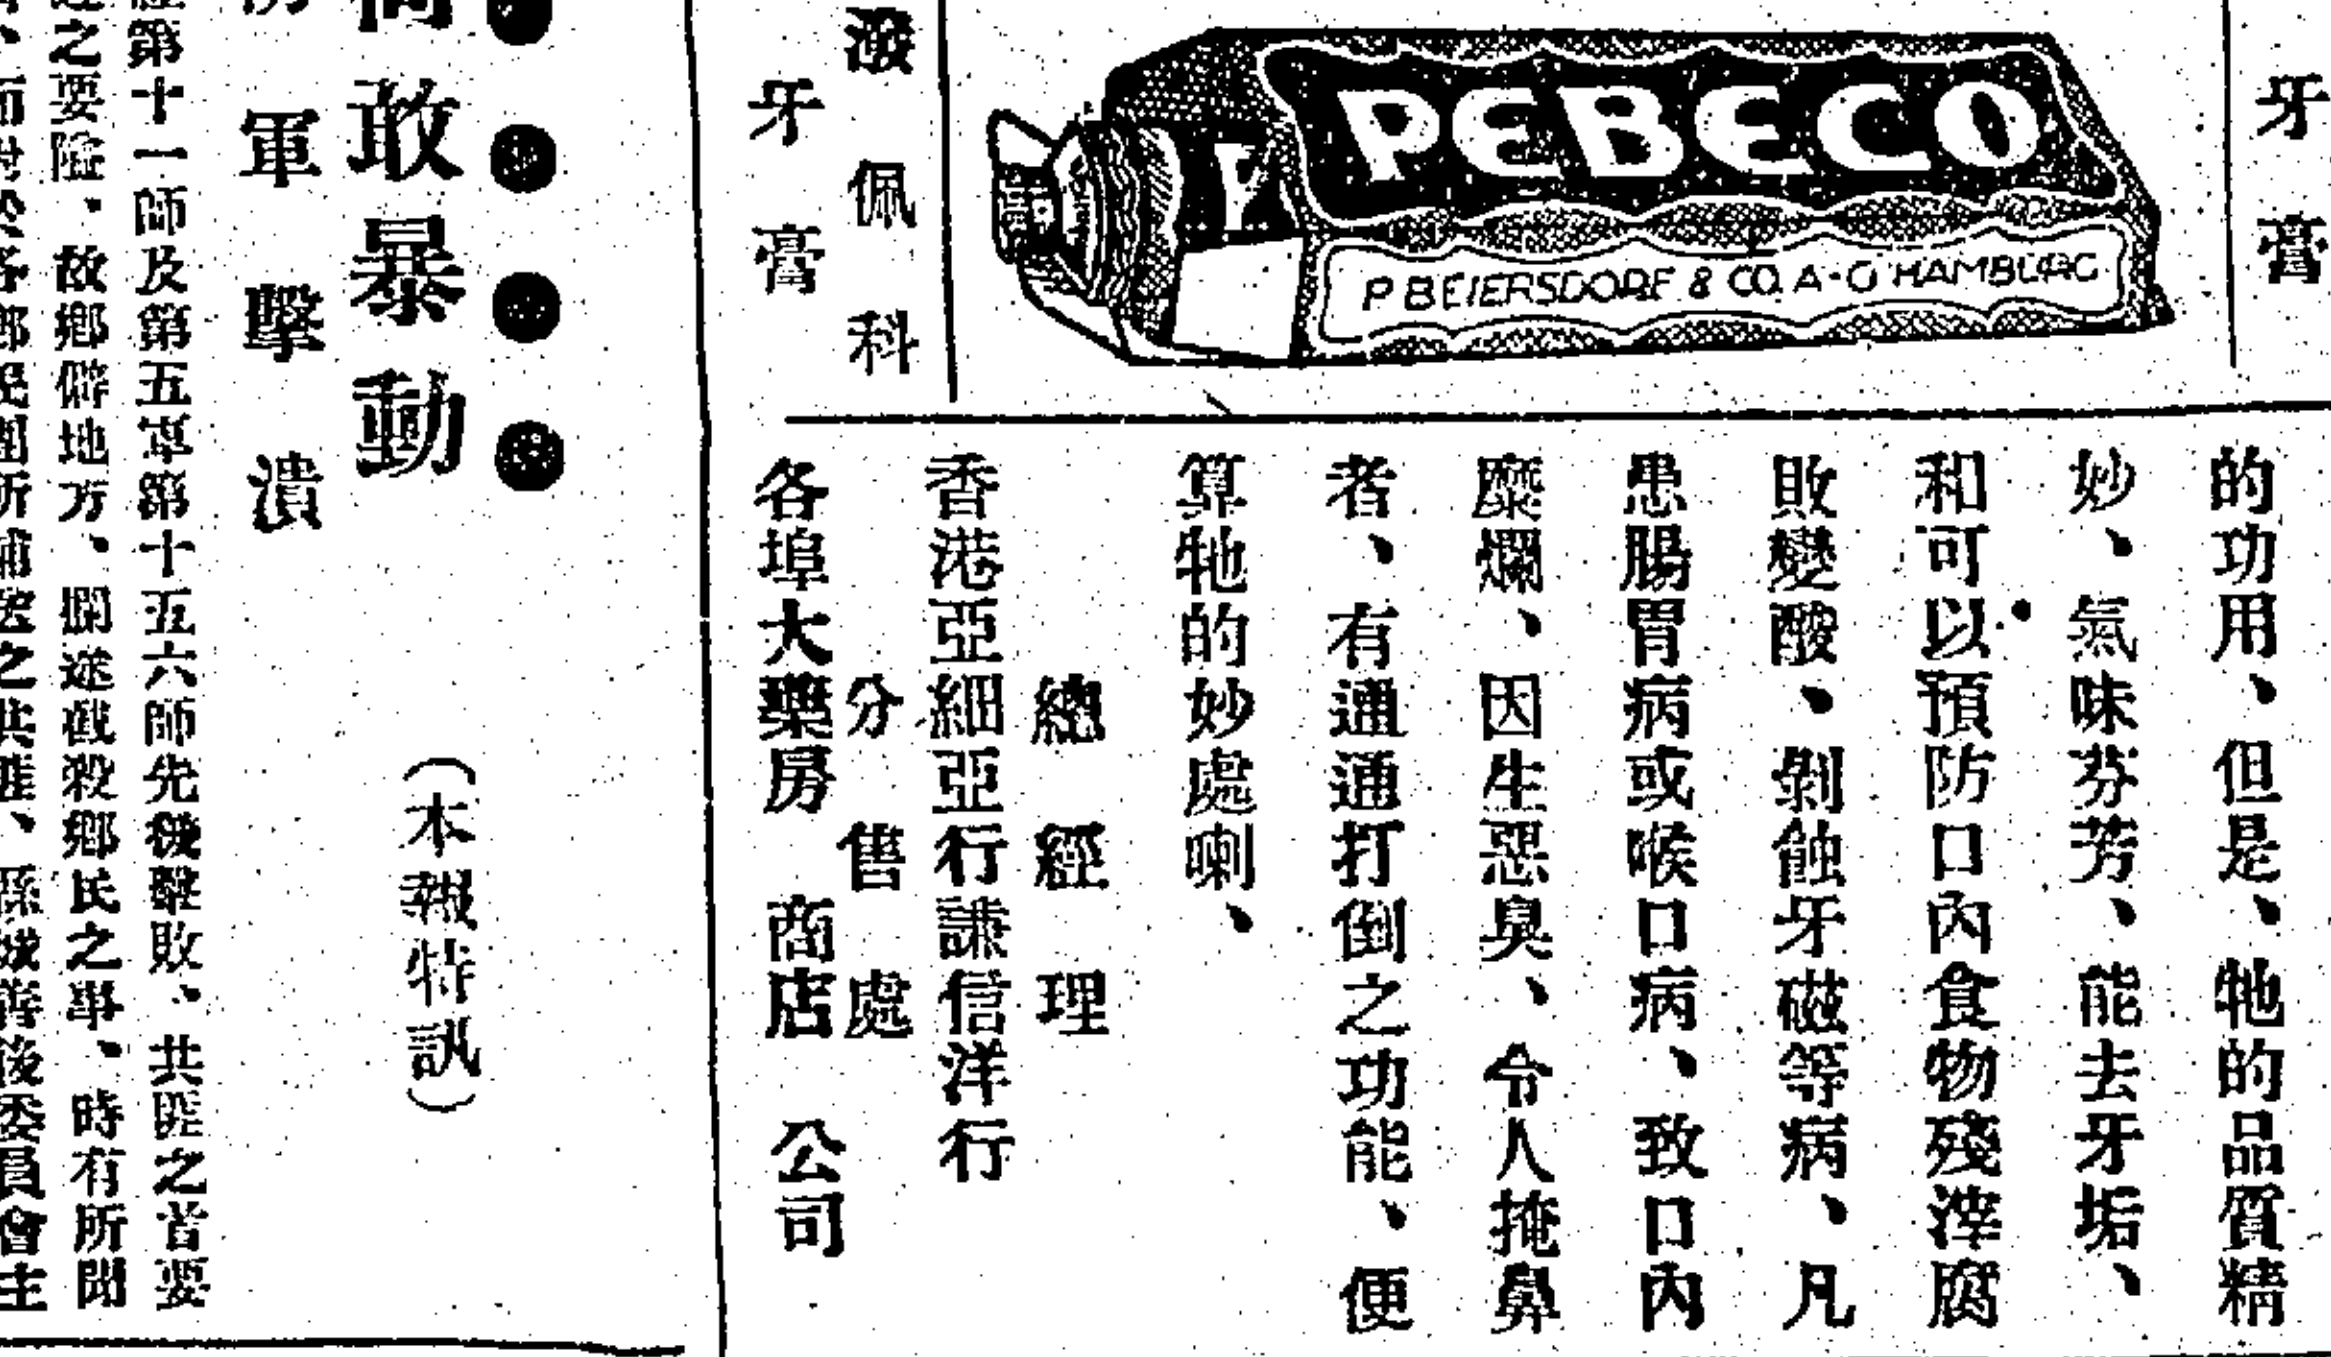 牙膏
PEBECO
P. BEIERSDORF & CO. A-G HAMBURG
潑佩科
牙膏
的功用、但是、牠的品質精
妙、氣味芬芳、能去牙垢、
和可以預防口內食物殘滓腐
敗變酸、剝蝕牙磁等病、凡
患腸胃病或喉口病、致口內
糜爛、因生惡臭、令人掩鼻
者、有通通打倒之功能、便
算牠的妙處喇、
總經理
香港亞細亞行謙信洋行
分售處
各埠大藥房 商店 公司
敢暴動
(本報特訊)
軍擊潰
第十一師及第五軍第十五六師先後擊敗、共匪之首要
之要隘、故鄉僻地方、攔途截殺鄉民之事、時有所聞